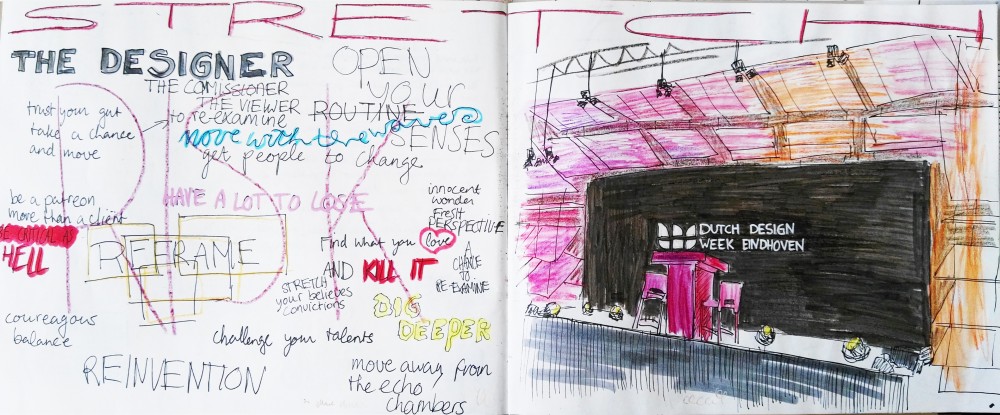 STRETCH
RISK
THE DESIGNER
THE COMISSIONER
THE VIEWER
to re-examine
trust your gut
take a chance
and move
OPEN
your
ROUTINE
SENSES
move with the waves
get people to change
be a patreon
more than a client
HELL
HAVE A LOT TO LOSE
REFRAME
innocent
wonder
Fresh
PERSPECTIVE
A
CHANCE
TO
RE-EXAMINE
Find what you love
AND KILL IT
STRETCH
your believes
convictions
DIG
DEEPER
coureagous
balance
challenge your talents
REINVENTION
move away from
the echo
chambers
DUTCH DESIGN
WEEK EINDHOVEN